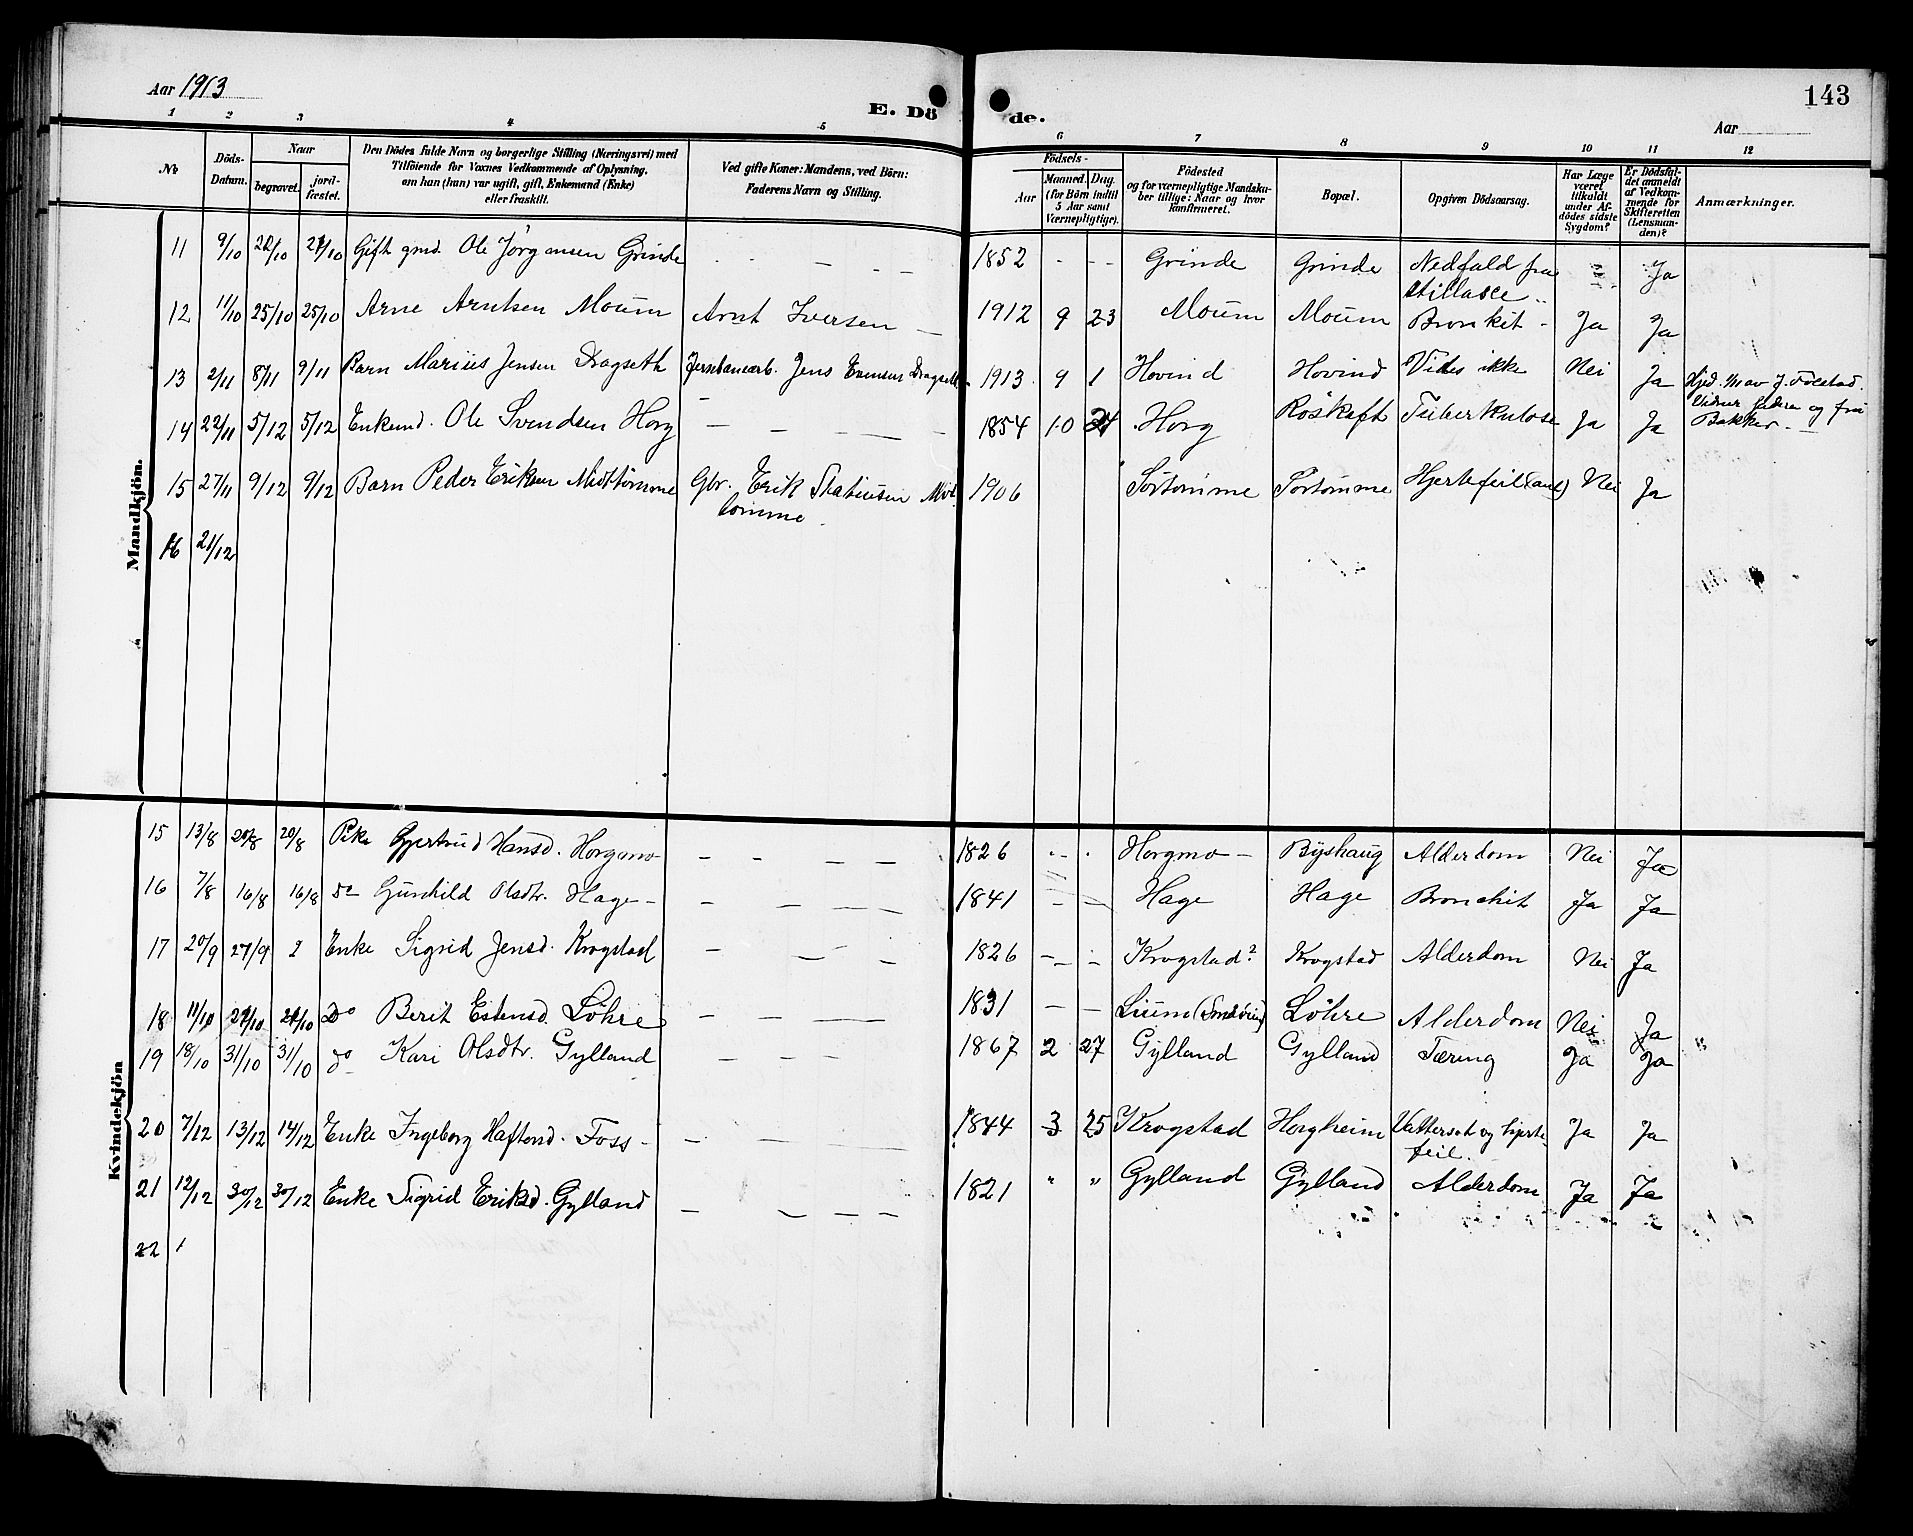 Aar 1913
E. Dö de.
143
Aar
1 2 3 4 5 6 7 8 9 10 11 12
No
Döds-Datum.
Naar
begravet.
jord-fæstet.
Den Dödes fulde Navn og borgerlige Stilling (Næringsvei) med
Tilföiende for Voxnes Vedkommende af Oplysning,
om han (hun) var ugift, gift, Enkemand (Enke)
eller fraskilt.
Ved gifte Koner: Mandens, ved Börn:
Faderens Navn og Stilling.
Födsels-
Aar
Maaned. Dag.
(for Börn indtil
5 Aar samt
Værnepligtige).
Födested
og for værnepligtige Mandsku-
ber tillige: Naar og hvor
konfirmeret.
Bopæl.
Opgiven Dödsaarsag.
Har Læge
været
tilkaldt
under Af-
dödes sidste
Sygdom?
Er Dödsfal-
det anmeldt
af Vedkom-
mende for
Skifteretten
(Lensman-
den)?
Anmærkninger.
Mandkjön.
11 9/10 22/10 21/10 Gift gmd. Ole Jörgensen Grinde 1852 Grinde Grinde Nedfald fra stillase Ja
12 11/10 25/10 25/10 Arne Arntsen Moum Arnt Iversen 1912 9 23 Moum Moum Bronkit Ja Ja
13 2/11 8/11 9/11 Barn Marius Jensen Dragseth Jernbanearb. Jens Evensen Dragseth 1913 9 1 Hovind Hovind Vides ikke Nei Ja Hjed. av J. Folstad.
og fru
Bakker
14 22/11 5/12 5/12 Enkemd. Ole Svendsen Horg 1854 10 24 Horg Röskaft Tuberkulose Ja Ja
15 27/11 9/12 9/12 Barn Peder Eriksen Midttömme Gbr. Erik Statiusen Mid-
tömme 1906 Sörtömme Sörtömme Hjertefeil (ant.) Nei Ja
16 21/12
Kvindekjön
15 13/8 20/8 20/8 Pike Gjertrud Hansd. Horgmo 1826 Horgmo Byshaug Alderdom Nei Ja
16 7/8 16/8 16/8 do Gunhild Olsdtr. Hage 1841 Hage Hage Bronchit Ja Ja
17 20/9 27/9 2 Enke Sigrid Jensd. Krogstad 1826 Krogstad? Krogstad Alderdom Nei Ja
18 11/10 21/10 21/10 Do Berit Estensd. Löhre 1831 Lium Löhre Alderdom Nei Ja
19 18/10 31/10 31/10 do Kari Olsdtr. Gylland 1867 2 27 Gylland Gylland Tæring Ja Ja
20 7/12 13/12 14/12 Enke Ingeborg Haftord. Foss 1844 3 25 Krogstad Horgheim Vattersot og hjerte-
feil. Ja Ja
21 12/12 30/12 30/12 Enke Sigrid Eriksd. Gylland 1821 " " Gylland Gylland Alderdom Ja Ja
22 1